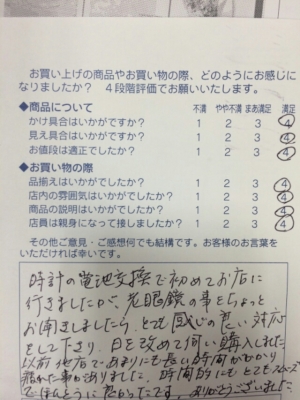 お買い上げの商品やお買い物の際、どのようにお感じに
なりましたか? 4段階評価でお願いいたします。
◆商品について 不満 やや不満 まあ満足 満足
かけ具合はいかがですか? 1 2 3 4
見え具合はいかがですか? 1 2 3 4
お値段は適正でしたか? 1 2 3 4
◆お買い物の際
品揃えはいかがでしたか? 1 2 3 4
店内の雰囲気はいかがでしたか? 1 2 3 4
商品の説明はいかがでしたか? 1 2 3 4
店員は親身になって接しましたか? 1 2 3 4
その他ご意見・ご感想何でも結構です。お客様のお言葉を
いただければ幸いです。
時計の電池交換で初めてお店に
行きましたが、老眼鏡の事をちょっと
お聞きしましたら、とても感じの良い対応
をして下さり、日を改めて伺い購入しました
以前他店であまりにも長い時間がかかり
疲れた事がありました。時間的にもとてもスムーズ
でほんとうに良かったです。ありがとうございました